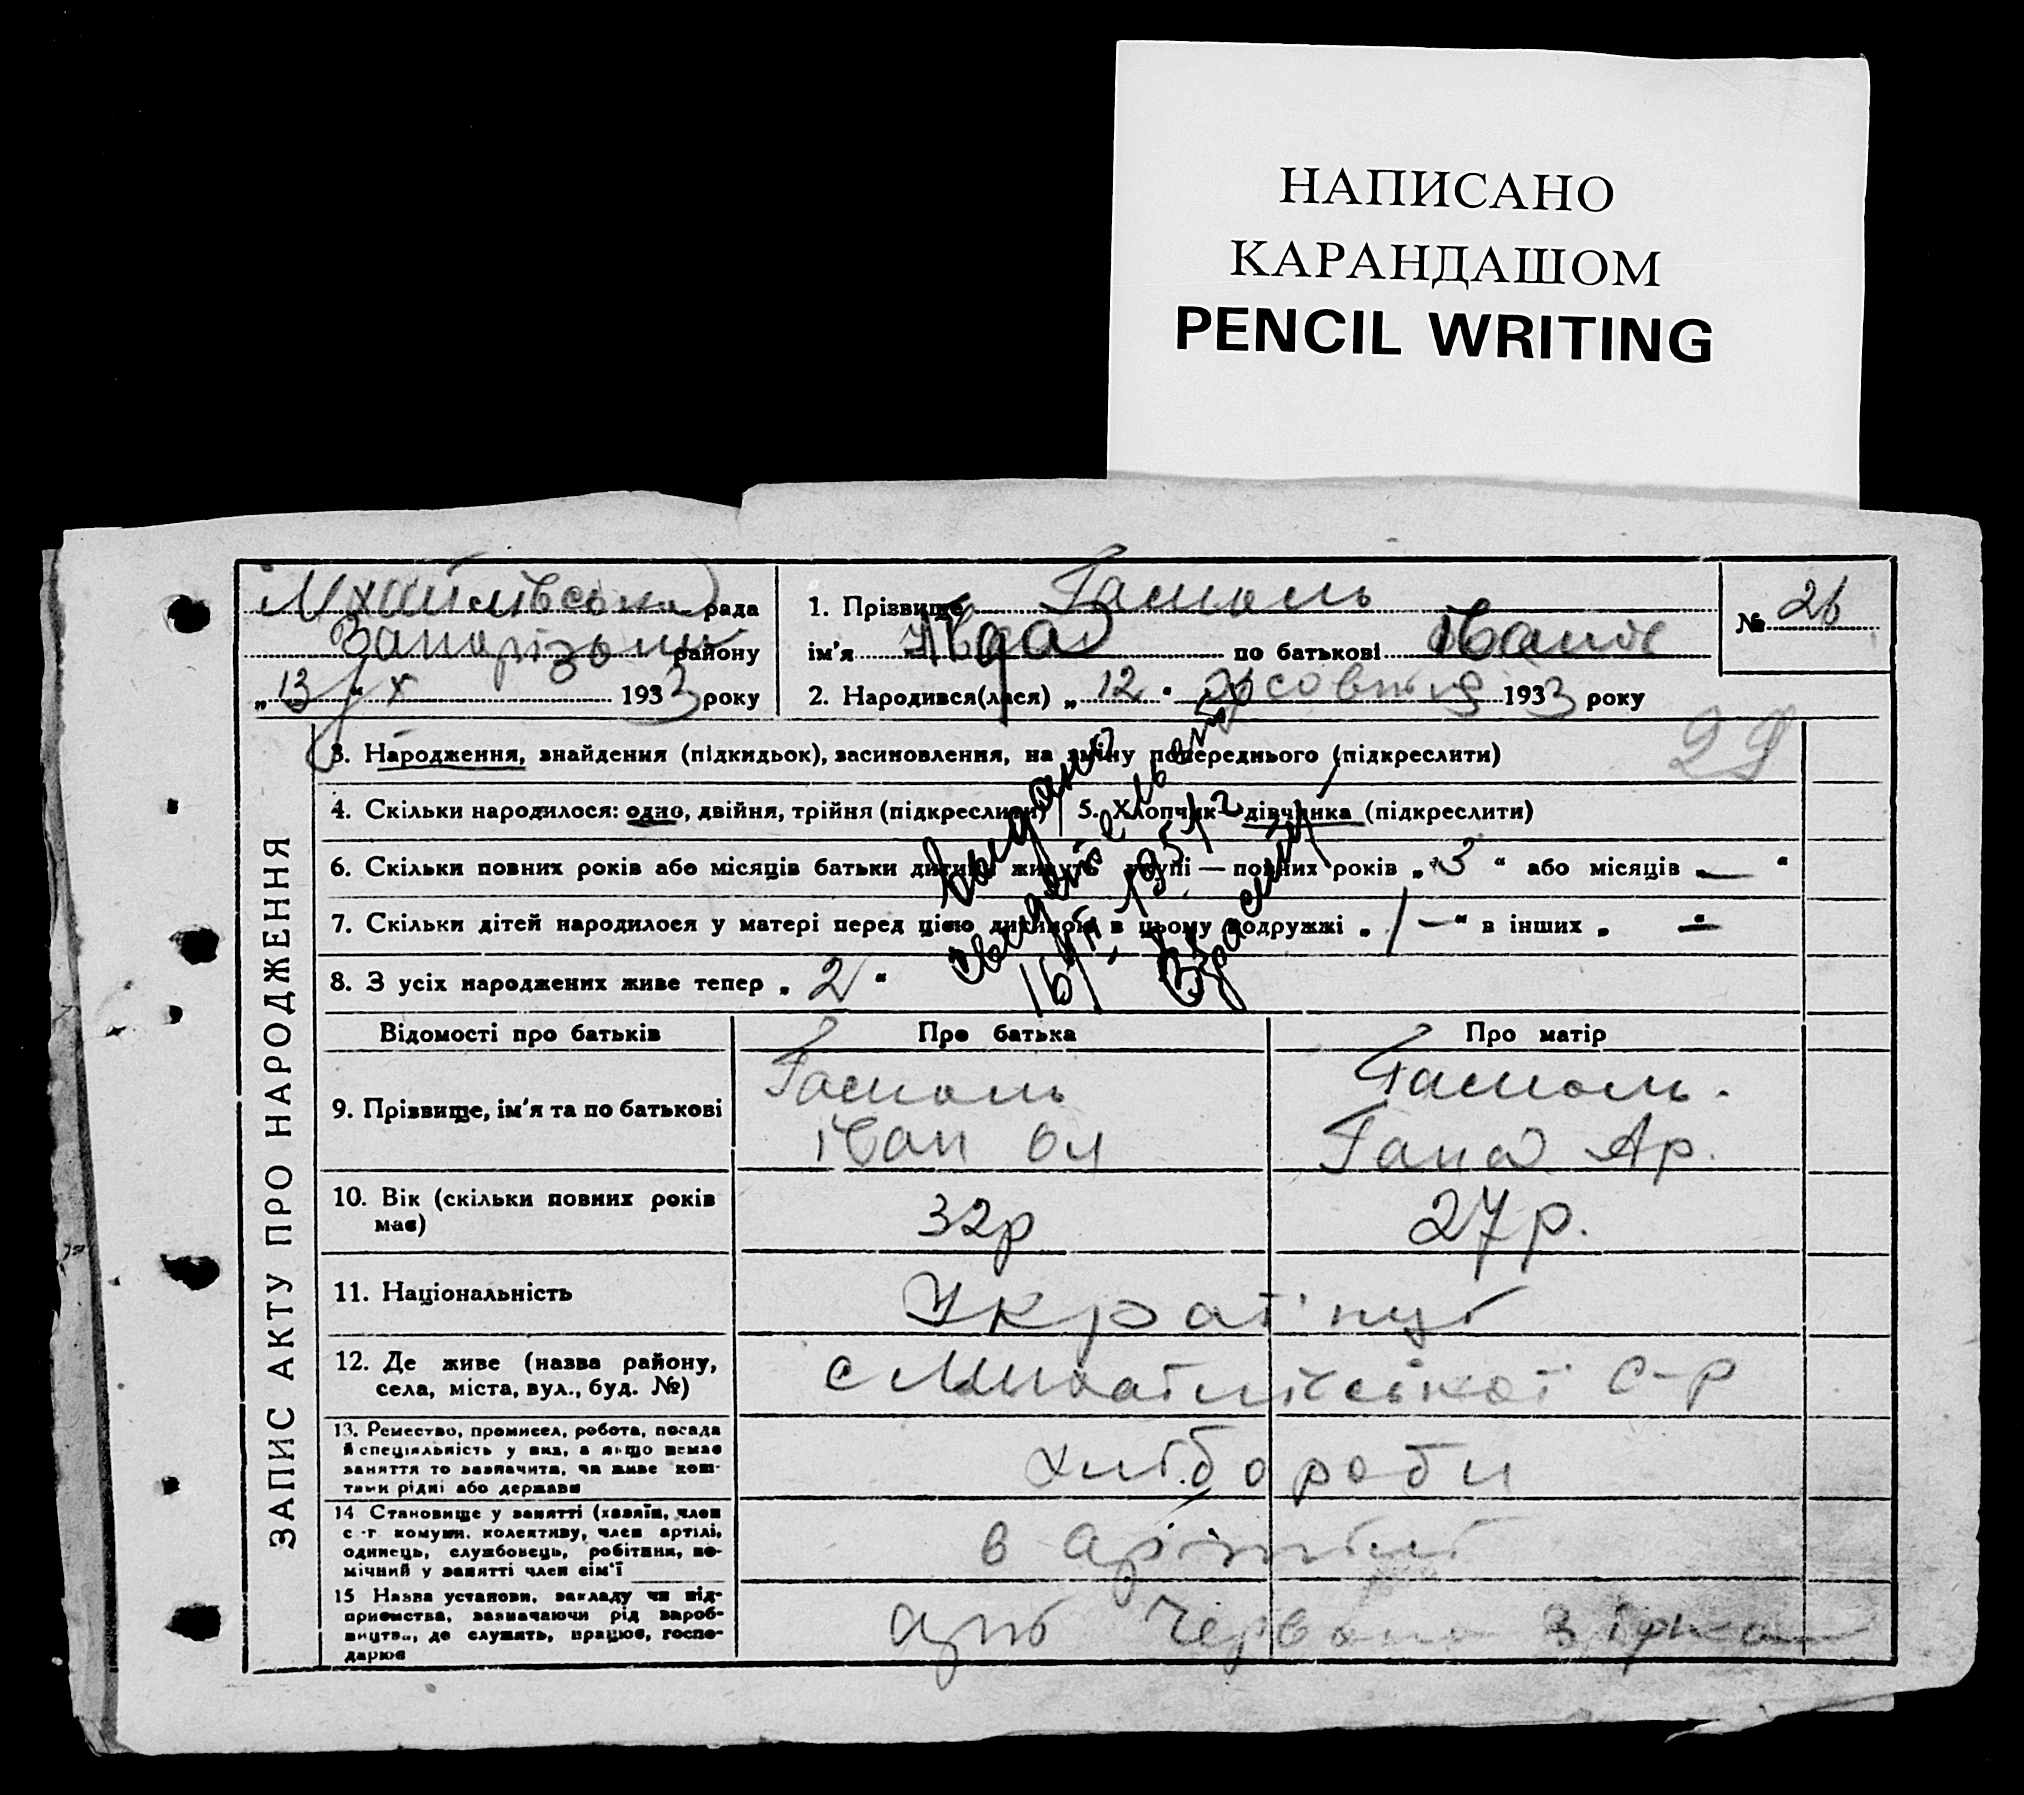 НАПИСАНО
КАРАНДАШОМ
PENCIL WRITING
рада
Запорізьк району
„13“ X 1933 року
1. Прізвище
ім'я по батькові Іванів
№ 26
2. Народився(лася) „12“ Жовтня 1933 року
29
ЗАПИС АКТУ ПРО НАРОДЖЕННЯ
3. Народження, знайдення (підкидьок), засиновлення, на зміну попереднього (підкреслити)
4. Скільки народилося: одно, двійня, трійня (підкреслити) 5. Хлопчик — дівчинка (підкреслити)
6. Скільки повних років або місяців батьки дитини живуть вкупі — повних років „3“ або місяців „—“
7. Скільки дітей народилося у матері перед цією дитиною в цьому подружжі „1—“ в інших „—“
8. З усіх народжених живе тепер „2“
Відомості про батьків Про батька Про матір
9. Прізвище, ім'я та по батькові
Іван Ол Гана Ар.
10. Вік (скільки повних років має) 32р 27р.
11. Національність Украінці
12. Де живе (назва району, села, міста, вул., буд. №) с Михаілівської с-р
13. Ремество, промисел, робота, посада й спеціяльність у них, а якщо немає заняття то зазначити, чи живе коштами рідні або держави хліборोби
14 Становище у занятті (хазяїн, член с-г комуни, колективу, член артілі, одинець, службовець, робітник, помічний у занятті член сім'ї в
15 Назва установи, закладу чи підприємства, зазначаючи рід виробництва, де служить, працює, господарює Червона Зірка